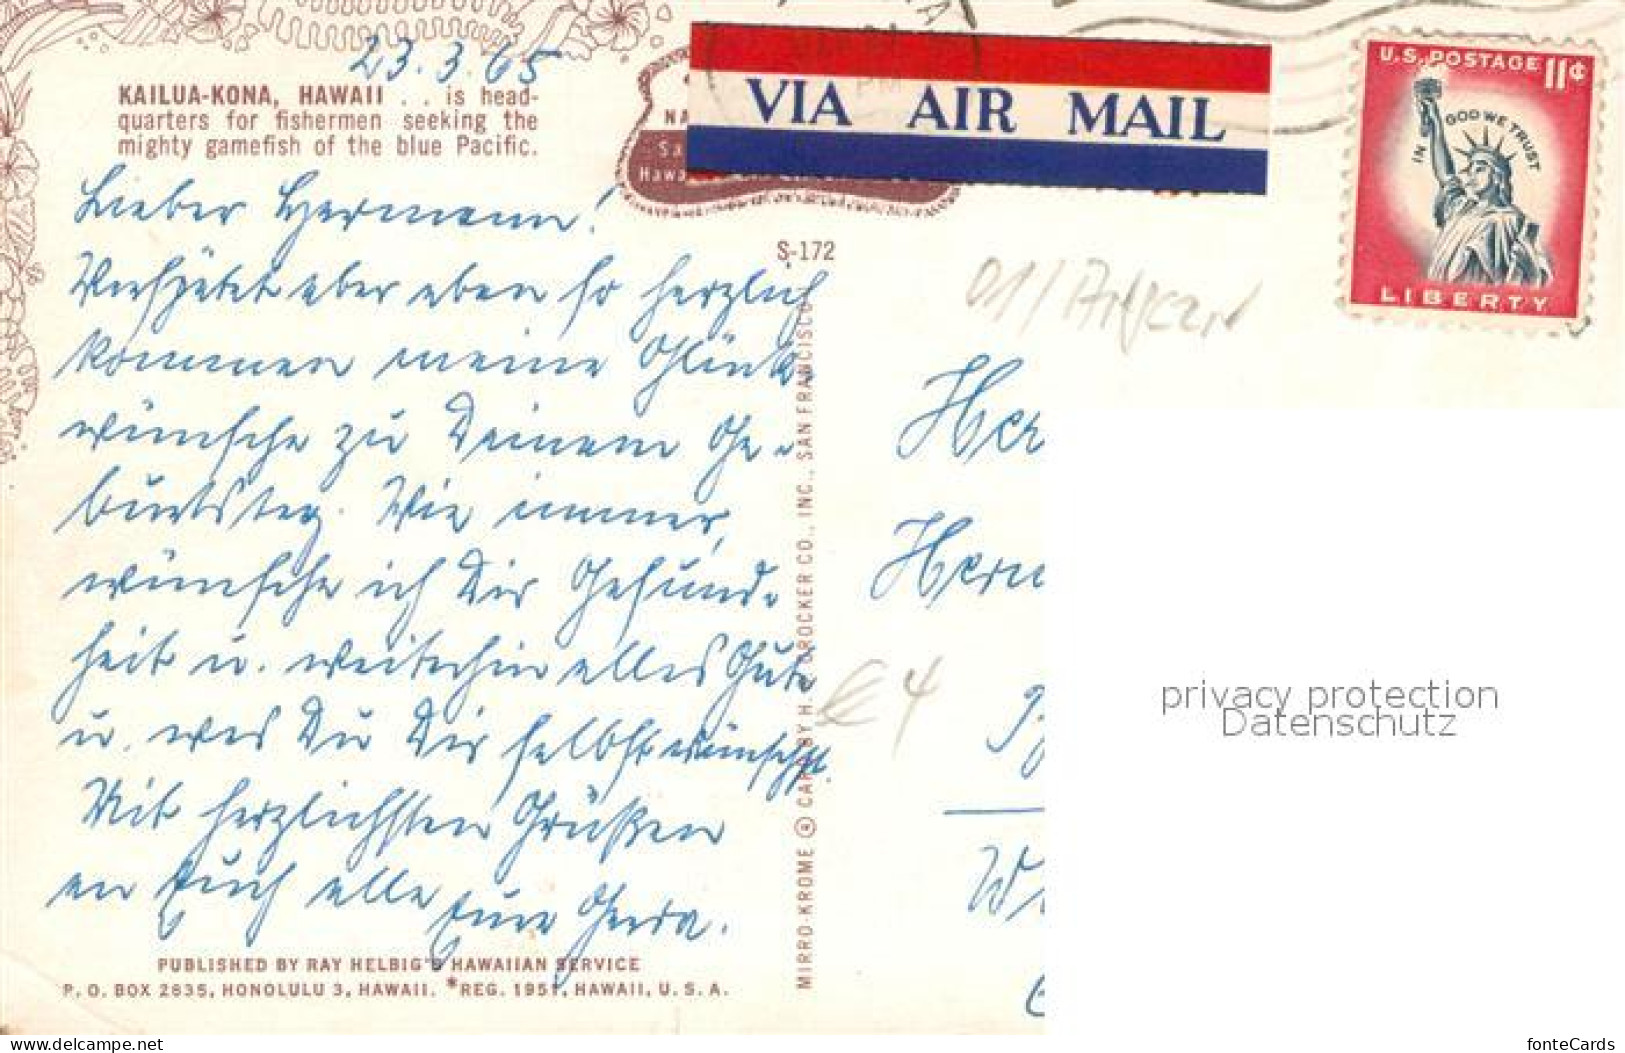 23.3.65
KAILUA-KONA, HAWAII . . is head-
quarters for fishermen seeking the
mighty gamefish of the blue Pacific.
VIA AIR MAIL
U.S. POSTAGE 11¢
IN GOD WE TRUST
LIBERTY
PM
NA
Sa
Hawa
S-172
Lieber Hermann!
Verspätet aber eben so herzlich
kommen meine Glück-
wünsche zu Deinem Ge-
burtstag. Wie immer,
wünsche ich Dir Gesund-
heit u. weiterhin alles Gute
u. was Du Dir selbst wünschst.
Mit herzlichsten Grüßen
an Euch alle Eure Gerda.
PUBLISHED BY RAY HELBIG'S HAWAIIAN SERVICE
P.O. BOX 2835, HONOLULU 3, HAWAII. *REG. 1951, HAWAII, U.S.A.
MIRRO-KROME ® CARD BY H.S. CROCKER CO., INC., SAN FRANCISCO
Her
Herm
W
€ 4
privacy protection
Datenschutz
www.delcampe.net
fonteCards